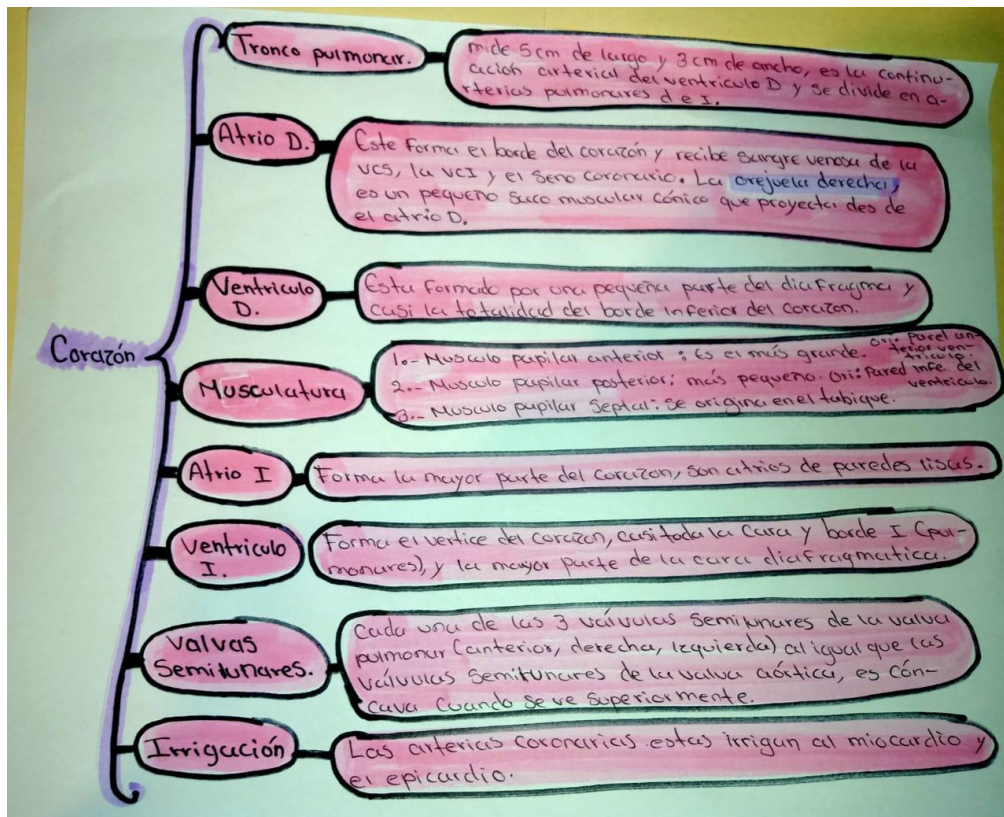 Corazón
Tronco pulmonar.
mide 5cm de largo y 3cm de ancho, es la continu-
ación arterial del ventriculo D y se divide en a-
rterias pulmonares d e I.
Atrio D.
Este forma el borde del corazón y recibe sangre venosa de la
VCS, la VCI y el seno coronario. La orejuela derecha,
es un pequeño saco muscular cónico que proyecta des de
el atrio D.
Ventriculo
D.
Esta formado por una pequeña parte del diafragma y
casi la totalidad del borde inferior del corazon.
Musculatura
1.- Musculo papilar anterior: Es el más grande. Ori: Pared an-
terior ven-
triculo.
2.- Musculo papilar posterior: más pequeño. Ori: Pared infe. del
ventriculo.
3.- Musculo papilar Septal: se origina en el tabique.
Atrio I
Forma la mayor parte del corazon, son atrios de paredes lisas.
Ventriculo
I.
Forma el vertice del corazon, casi toda la cara y borde I (pul-
monares), y la mayor parte de la cara diafragmatica.
Valvas
Semilunares.
Cada una de las 3 válvulas semilunares de la valva
pulmonar (anterior, derecha, izquierda) al igual que las
válvulas semilunares de la valva aórtica, es cón-
cava cuando se ve superiormente.
Irrigación
Las arterias coronarias estas irrigan al miocardio y
el epicardio.